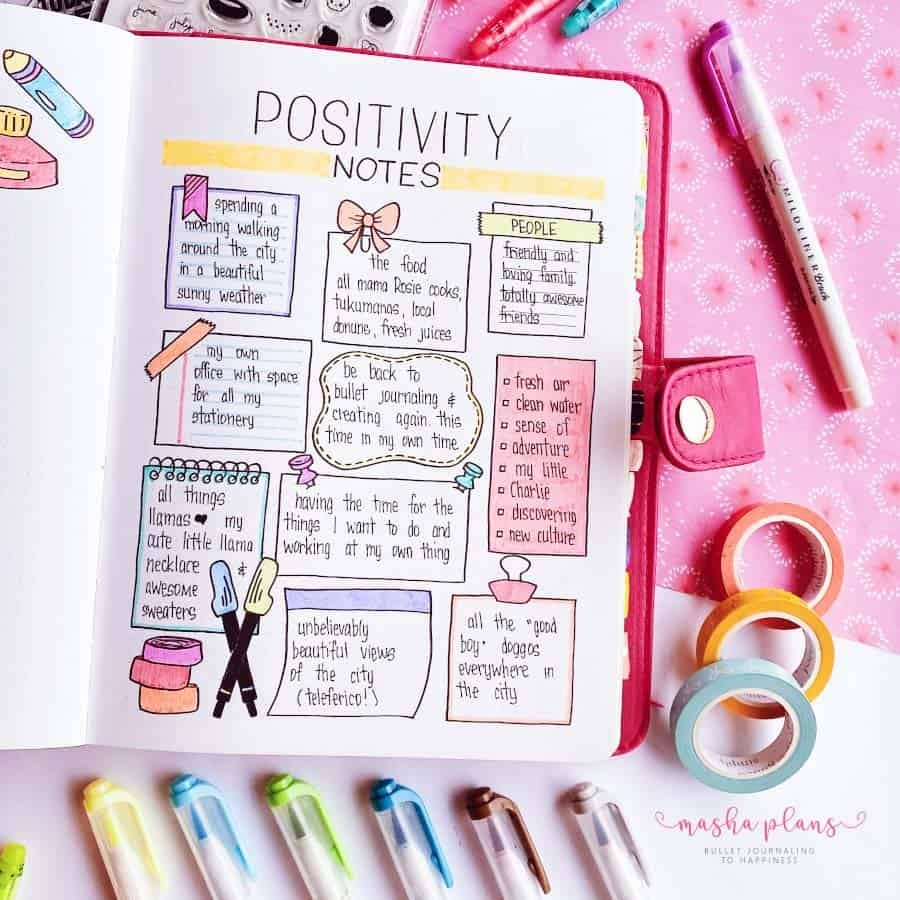 june
july
POSITIVITY
NOTES
spending a
morning walking
around the city
in a beautiful
sunny weather
the food
all mama Rosie cooks,
tukumanas, local
donune, fresh juices
PEOPLE
friendly and
loving family.
totally awesome
friends
my own
office with space
for all my
stationery
be back to
bullet journaling &
creating again. this
time in my own time
fresh air
clean water
sense of
adventure
my little
Charlie
discovering
new culture
all things
llamas ♥ my
cute little llama
necklace &
awesome
sweaters
having the time for the
things I want to do and
working at my own thing
unbelievably
beautiful views
of the city
(teleferico!)
all the "good
boy" doggos
everywhere in
the city
MILDLINER Brush
masha plans
BULLET JOURNALING
TO HAPPINESS